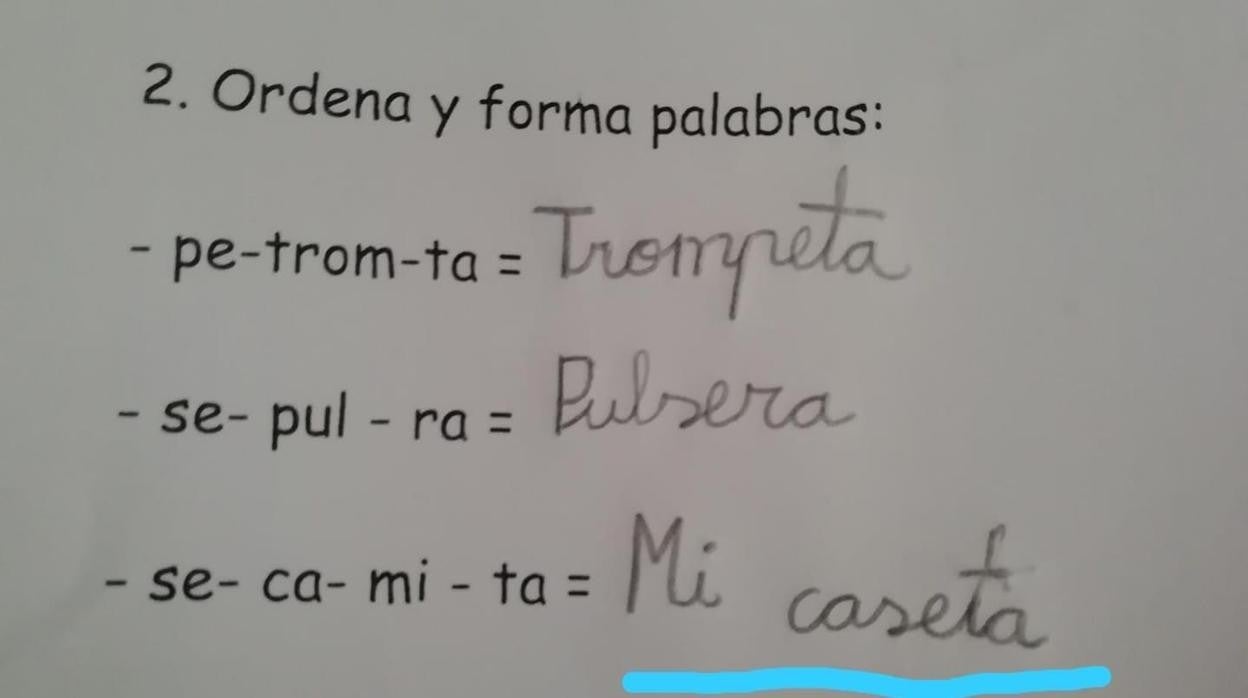 2. Ordena y forma palabras:
- pe-trom-ta = Trompeta
- se- pul - ra = Pulsera
- se- ca- mi - ta = Mi caseta